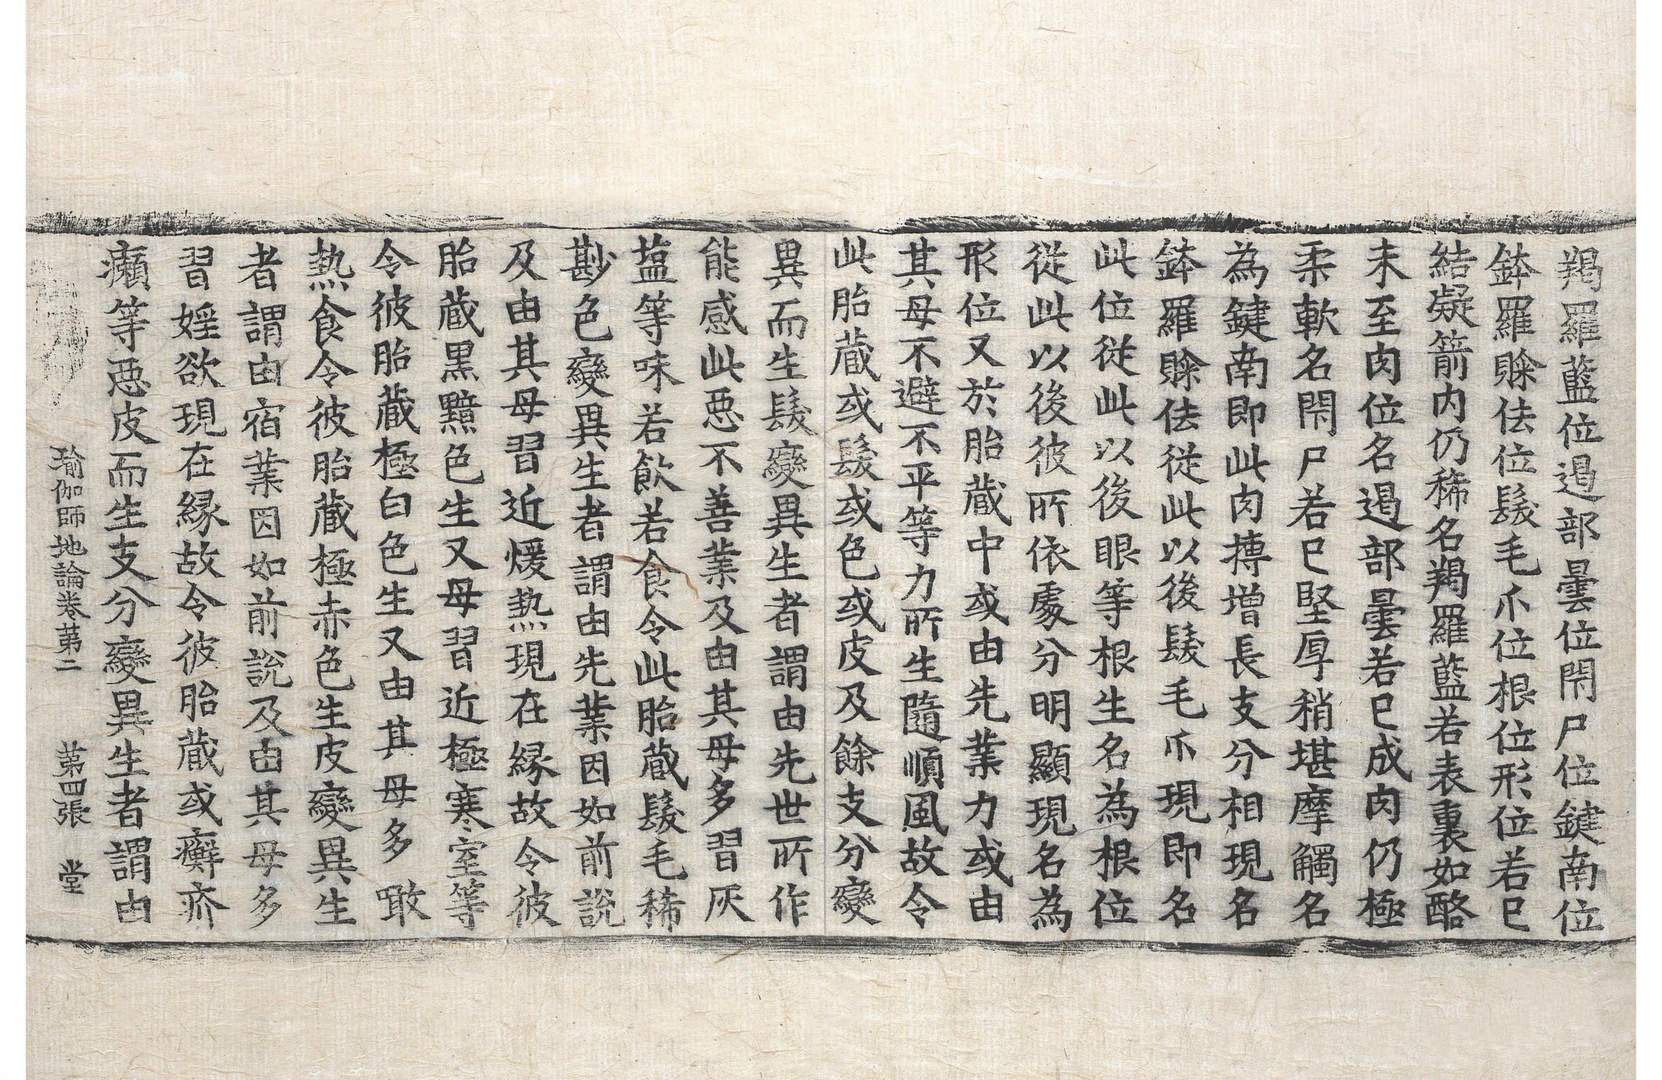 羯羅藍位遏部曇位閇尸位鍵南位
鉢羅賒佉位髮毛爪位根位形位若已
結凝箭內仍稀名羯羅藍若表裏如酪
未至肉位名遏部曇若已成肉仍極
柔軟名閇尸若已堅厚稍堪摩觸名
為鍵南即此肉摶增長支分相現名
鉢羅賒佉從此以後髮毛爪現即名
此位從此以後眼等根生名為根位
從此以後彼所依處分明顯現名為
形位又於胎藏中或由先業力或由
其母不避不平等力所生隨順風故令
此胎藏或髮或色或皮及餘支分變
異而生髮變異生者謂由先世所作
能感此惡不善業及由其母多習灰
塩等味若飲若食令此胎藏髮毛稀
尠色變異生者謂由先業因如前說
及由其母習近煖熱現在縁故令彼
胎藏黑黯色生又母習近極寒室等
令彼胎藏極白色生又由其母多噉
熱食令彼胎藏極赤色生皮變異生
者謂由宿業因如前說及由其母多
習婬欲現在縁故令彼胎藏或癬疥
癩等惡皮而生支分變異生者謂由
瑜伽師地論卷第二 第四張 堂